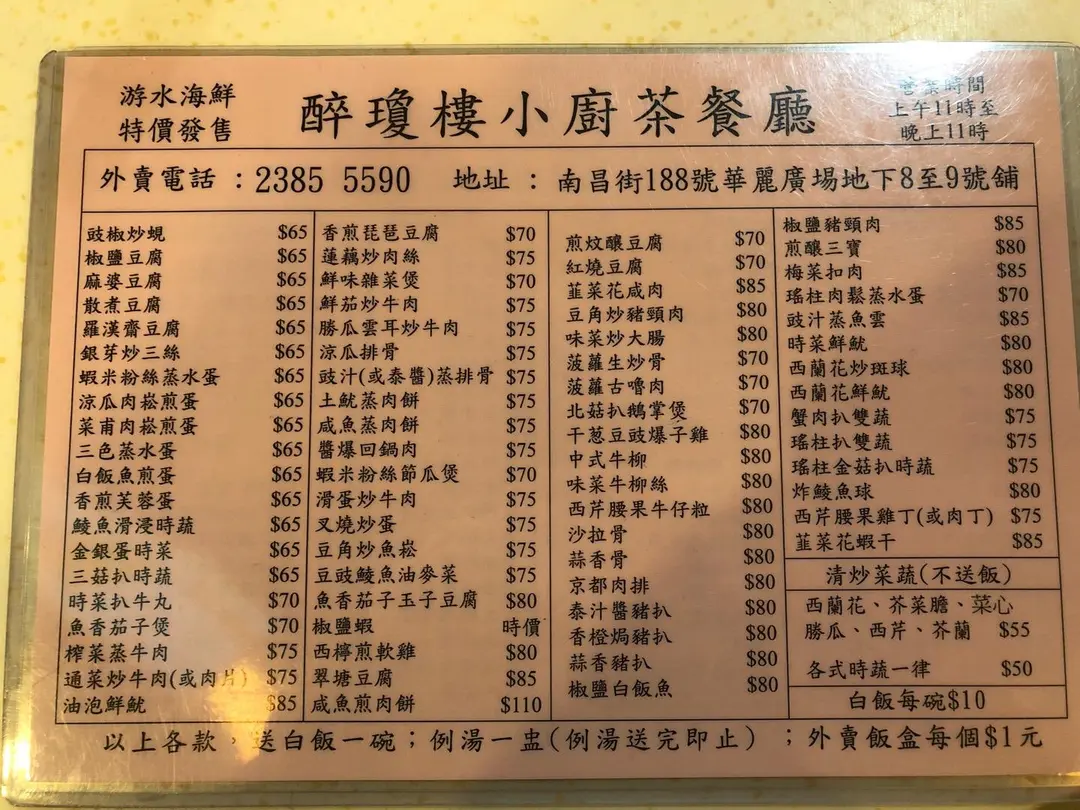 游水海鮮
特價發售
醉瓊樓小廚茶餐廳
營業時間
上午11時至
晚上11時
外賣電話：2385 5590 地址：南昌街188號華麗廣場地下8至9號舖
豉椒炒蜆 $65
椒鹽豆腐 $65
麻婆豆腐 $65
散煮豆腐 $65
羅漢齋豆腐 $65
銀芽炒三絲 $65
蝦米粉絲蒸水蛋 $65
涼瓜肉崧煎蛋 $65
菜甫肉崧煎蛋 $65
三色蒸水蛋 $65
白飯魚煎蛋 $65
香煎芙蓉蛋 $65
鯪魚滑浸時蔬 $65
金銀蛋時菜 $65
三菇扒時蔬 $65
時菜扒牛丸 $70
魚香茄子煲 $70
榨菜蒸牛肉 $75
通菜炒牛肉(或肉片) $75
油泡鮮魷 $85
香煎琵琶豆腐 $70
蓮藕炒肉絲 $75
鮮味雜菜煲 $70
鮮茄炒牛肉 $75
勝瓜雲耳炒牛肉 $75
涼瓜排骨 $75
豉汁(或泰醬)蒸排骨 $75
土魷蒸肉餅 $75
咸魚蒸肉餅 $75
醬爆回鍋肉 $75
蝦米粉絲節瓜煲 $70
滑蛋炒牛肉 $75
叉燒炒蛋 $75
豆角炒魚崧 $75
豆豉鯪魚油麥菜 $75
魚香茄子玉子豆腐 $80
椒鹽蝦 時價
西檸煎軟雞 $80
翠塘豆腐 $85
咸魚煎肉餅 $110
煎炆釀豆腐 $70
紅燒豆腐 $70
韮菜花咸肉 $85
豆角炒豬頸肉 $80
味菜炒大腸 $80
菠蘿生炒骨 $70
菠蘿古嚕肉 $70
北菇扒鵝掌煲 $70
干葱豆豉爆子雞 $80
中式牛柳 $80
味菜牛柳絲 $80
西芹腰果牛仔粒 $80
沙拉骨 $80
蒜香骨 $80
京都肉排 $80
泰汁醬豬扒 $80
香橙焗豬扒 $80
蒜香豬扒 $80
椒鹽白飯魚 $80
椒鹽豬頸肉 $85
煎釀三寶 $80
梅菜扣肉 $85
瑤柱肉鬆蒸水蛋 $70
豉汁蒸魚雲 $85
時菜鮮魷 $80
西蘭花炒斑球 $80
西蘭花鮮魷 $80
蟹肉扒雙蔬 $75
瑤柱扒雙蔬 $75
瑤柱金菇扒時蔬 $75
炸鯪魚球 $80
西芹腰果雞丁(或肉丁) $75
韮菜花蝦干 $85
清炒菜蔬(不送飯)
西蘭花、芥菜膽、菜心
勝瓜、西芹、芥蘭 $55
各式時蔬一律 $50
白飯每碗$10
以上各款，送白飯一碗；例湯一盅(例湯送完即止)；外賣飯盒每個$1元